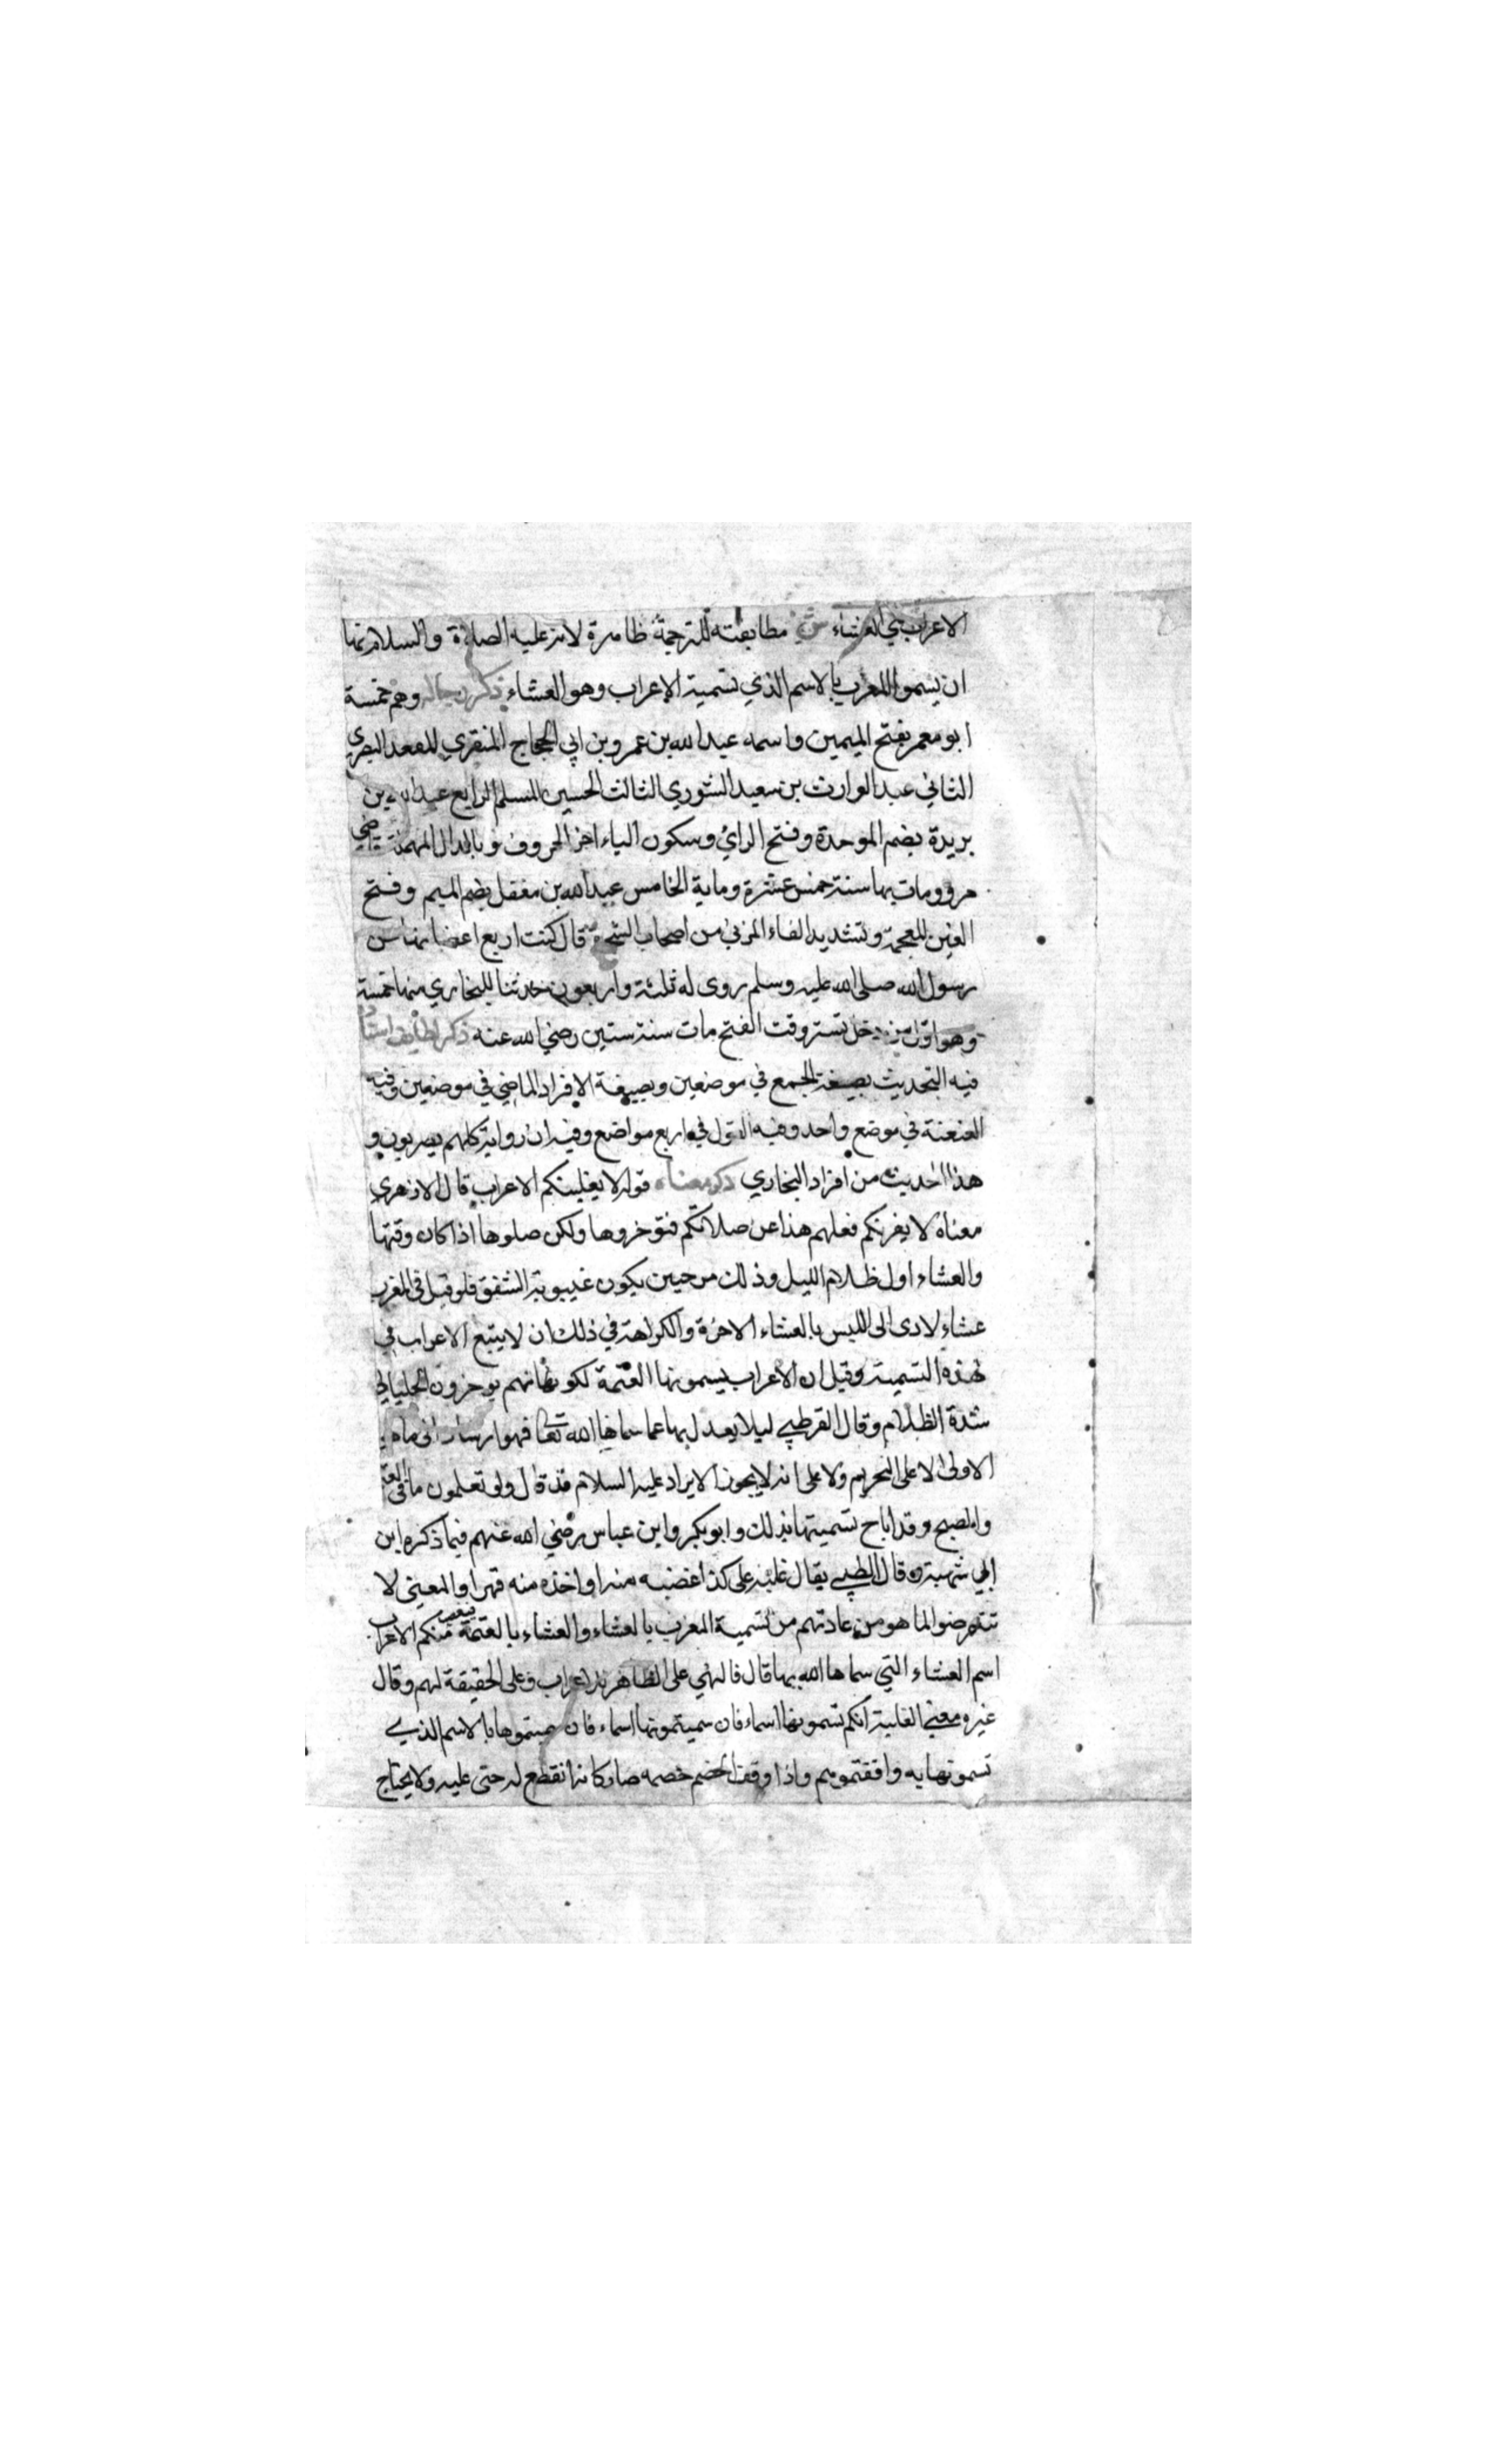 الاعراب هي العشاء ش مطابقته للترجمة ظاهرة لانه عليه الصلاة والسلام نها
ان يسموا المغرب بالاسم الذي تسمية الاعراب وهو العشاء ذكر رجاله وهم خمسة
ابو معمر بفتح الميمين واسمه عبد الله بن عمرو بن ابي الحجاج المنقري المقعد البصري
الثاني عبد الوارث بن سعيد التنوري الثالث الحسين المسلم الرابع عبد الله بن
بريدة بضم الموحدة وفتح الرائ وسكون الياء اخر الحروف وبالدال المهملة قاضي
مرو ومات بها سنة خمس عشرة وماية الخامس عبد الله بن مغفل بضم الميم وفتح
الغين المعجمة وتشديد الفاء المزني من اصحاب الشجرة قال كنت ارفع اغصانها عن
رسول الله صلى الله عليه وسلم روى له ثلثة واربعون حديثا للبخاري منها خمسة
وهو اول من دخل تستر وقت الفتح مات سنة ستين رضي الله عنه ذكر لطايف اسناده
فيه التحديث بصيغة الجمع في موضعين وبصيغة الافراد الماضي في موضعين وفيه
العنعنة في موضع واحد وفيه القول في اربع مواضع وفيه ان رواته كلهم بصريون و
هذا الحديث من افراد البخاري ذكر معناه قوله لا يغلبنكم الاعراب قال الازهري
معناه لا يغرنكم فعلهم هذا عن صلاتكم فتؤخروها ولكن صلوها اذا كان وقتها
والعشاء اول ظلام الليل وذلك من حين يكون غيبوبة الشفق فلو قيل في المغرب
عشاء لادى الى اللبس بالعشاء الاخرة والكراهة في ذلك ان لا يتبع الاعراب في
هذه التسمية وقيل ان الاعراب يسمونها العتمة لكونها نهم يوخرون الحلب الى
شدة الظلام وقال القرطبي ليلا يعدل بها عما سماها الله تعالى فهو ارشاد الى ما هو
الاولى لا على التحريم ولا على انه لا يجوز الا يراد عليه السلام قد قال ولو تعلمون ما في العتمة
والصبح وقد اباح تسميتها بذلك وابو بكر وابن عباس رضي الله عنهم فيما ذكره ابن
ابي شيبة وقال الطيبي يقال غلبه على كذا غضبه منه او اخذه منه قهرا والمعنى لا
تتعرضوا لما هو من عادتهم من تسمية المغرب بالعشاء والعشاء بالعتمة فيغصب منكم الاعراب
اسم العشاء التي سماها الله بها قال فالنهي على الظاهر للاعراب وعلى الحقيقة لهم وقال
غيره معنى الغلبة انكم تسمونها اسماء فان سميتمونها اسماء فان سميتموها بالاسم الذي
تسمونها به وافقتموهم واذا وقف الخصم خصمه صار كانه انقطع له حتى عليه ولا يحتاج